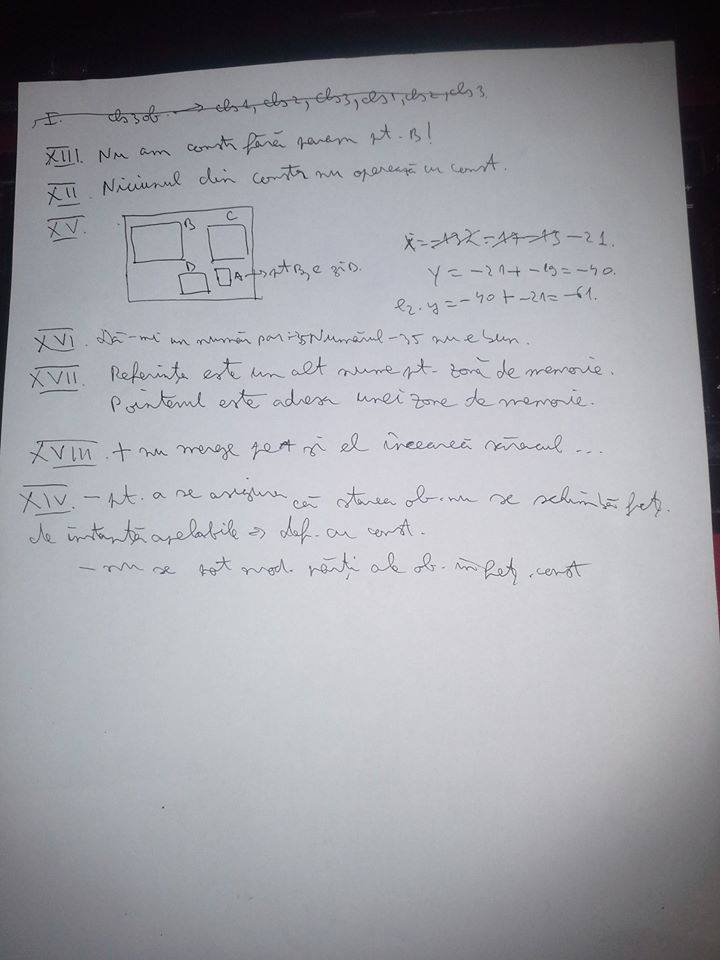 I. cls3 ob → cls1, cls2, cls3, cls1, cls2, cls3
XIII. Nu am constr fără param pt. B!
XII. Niciunul din constr nu operează cu const.
XV.
B
C
D
A → pt B, C și D.
X = -21.
Y = -21 + -19 = -40.
e2.y = -40 + -21 = -61.
XVI. Dă-mi un număr par: -35Numărul -35 nu e bun.
XVII. Referința este un alt nume pt. zonă de memorie.
Pointerul este adresa unei zone de memorie.
XVIII. + nu merge și el încearcă săracul...
XIV. - pt. a se asigura că starea ob. nu se schimbă fcț.
de instanță apelabile => def. cu const.
- nu se pot mod. părți ale ob. în fcț. const